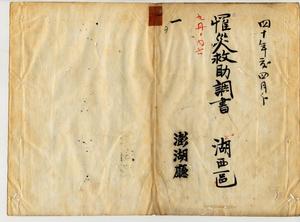 四十年度四月ゟ
罹災救助調書　湖西區
澎湖廳
一